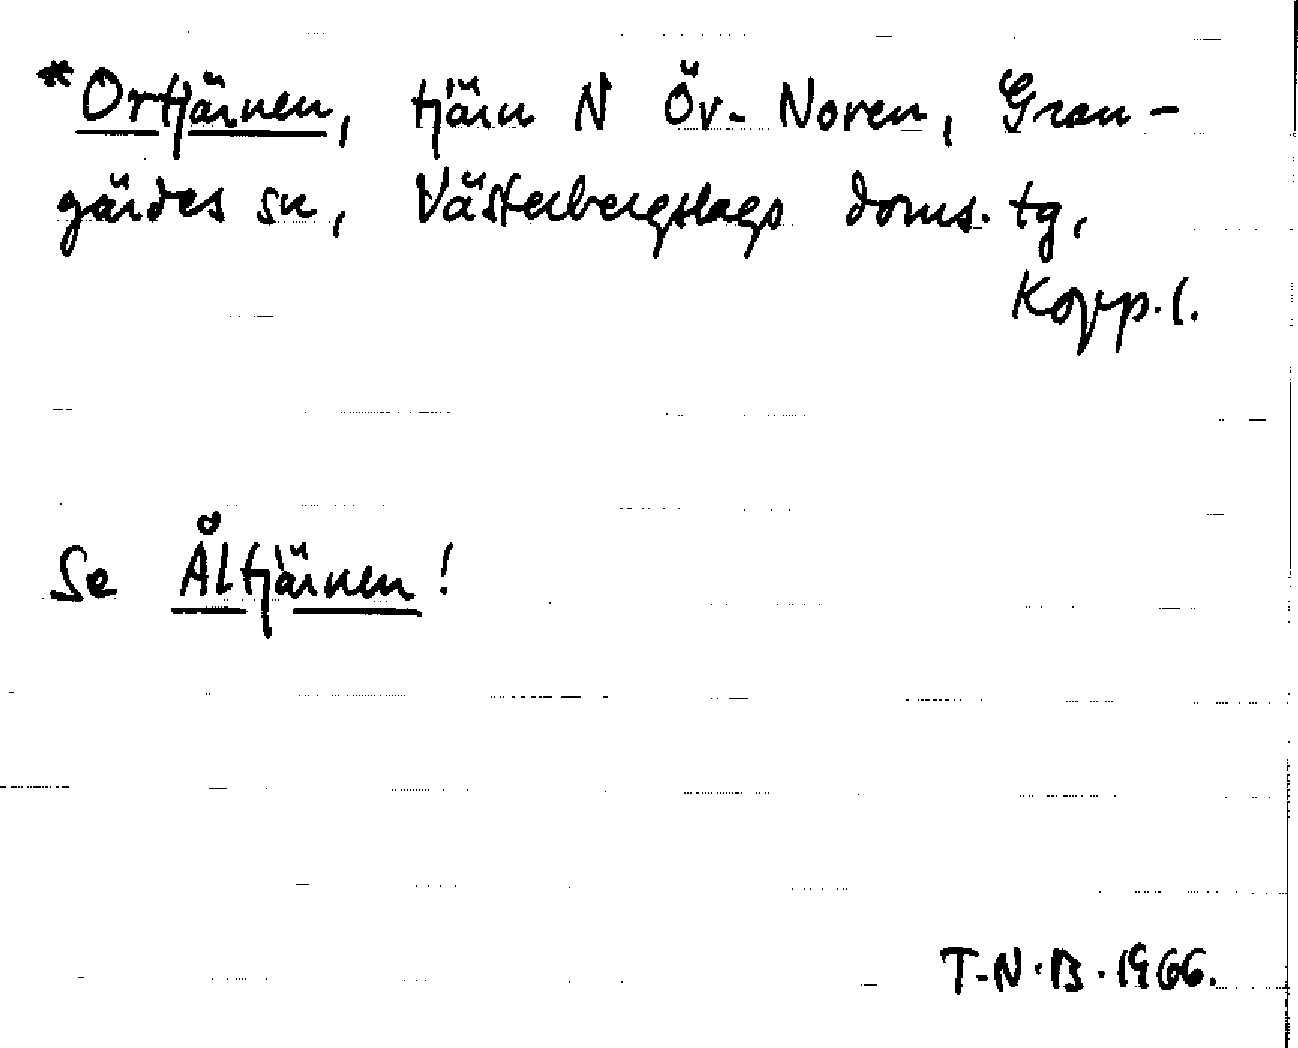 *Ortjärnen, tjärn N Öv. Noren, Gran-
gärdes sn, Västerbergslags doms. tg,
Kopp. l.
Se Åltjärnen!
T.N.B. 1966.